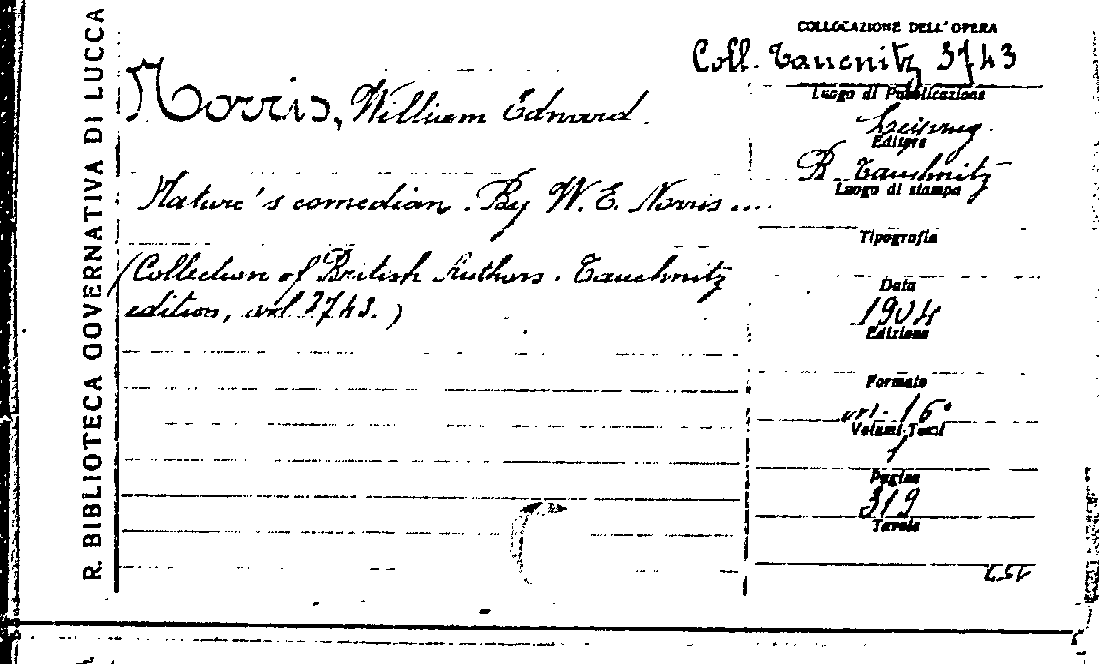 R. BIBLIOTECA GOVERNATIVA DI LUCCA
Norris, William Edward.
Nature's comedian. By W. E. Norris ...
(Collection of British Authors. Tauchnitz
edition, vol 3743.)
COLLOCAZIONE DELL'OPERA
Coll. Taucnitz 3743
Luogo di Pubblicazione
Leipzig
Editore
B. Tauchnitz
Luogo di stampa
Tipografia
Data
1904
Edizione
Formato
in-16°
Volumi-Tomi
1
Pagine
319
Tavole